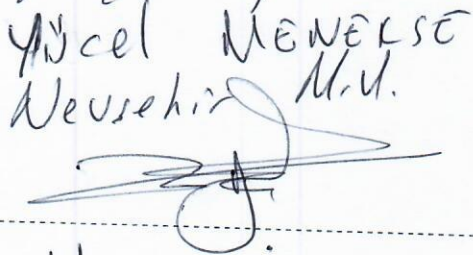 Yücel MENEKŞE
Nevsehir M.V.